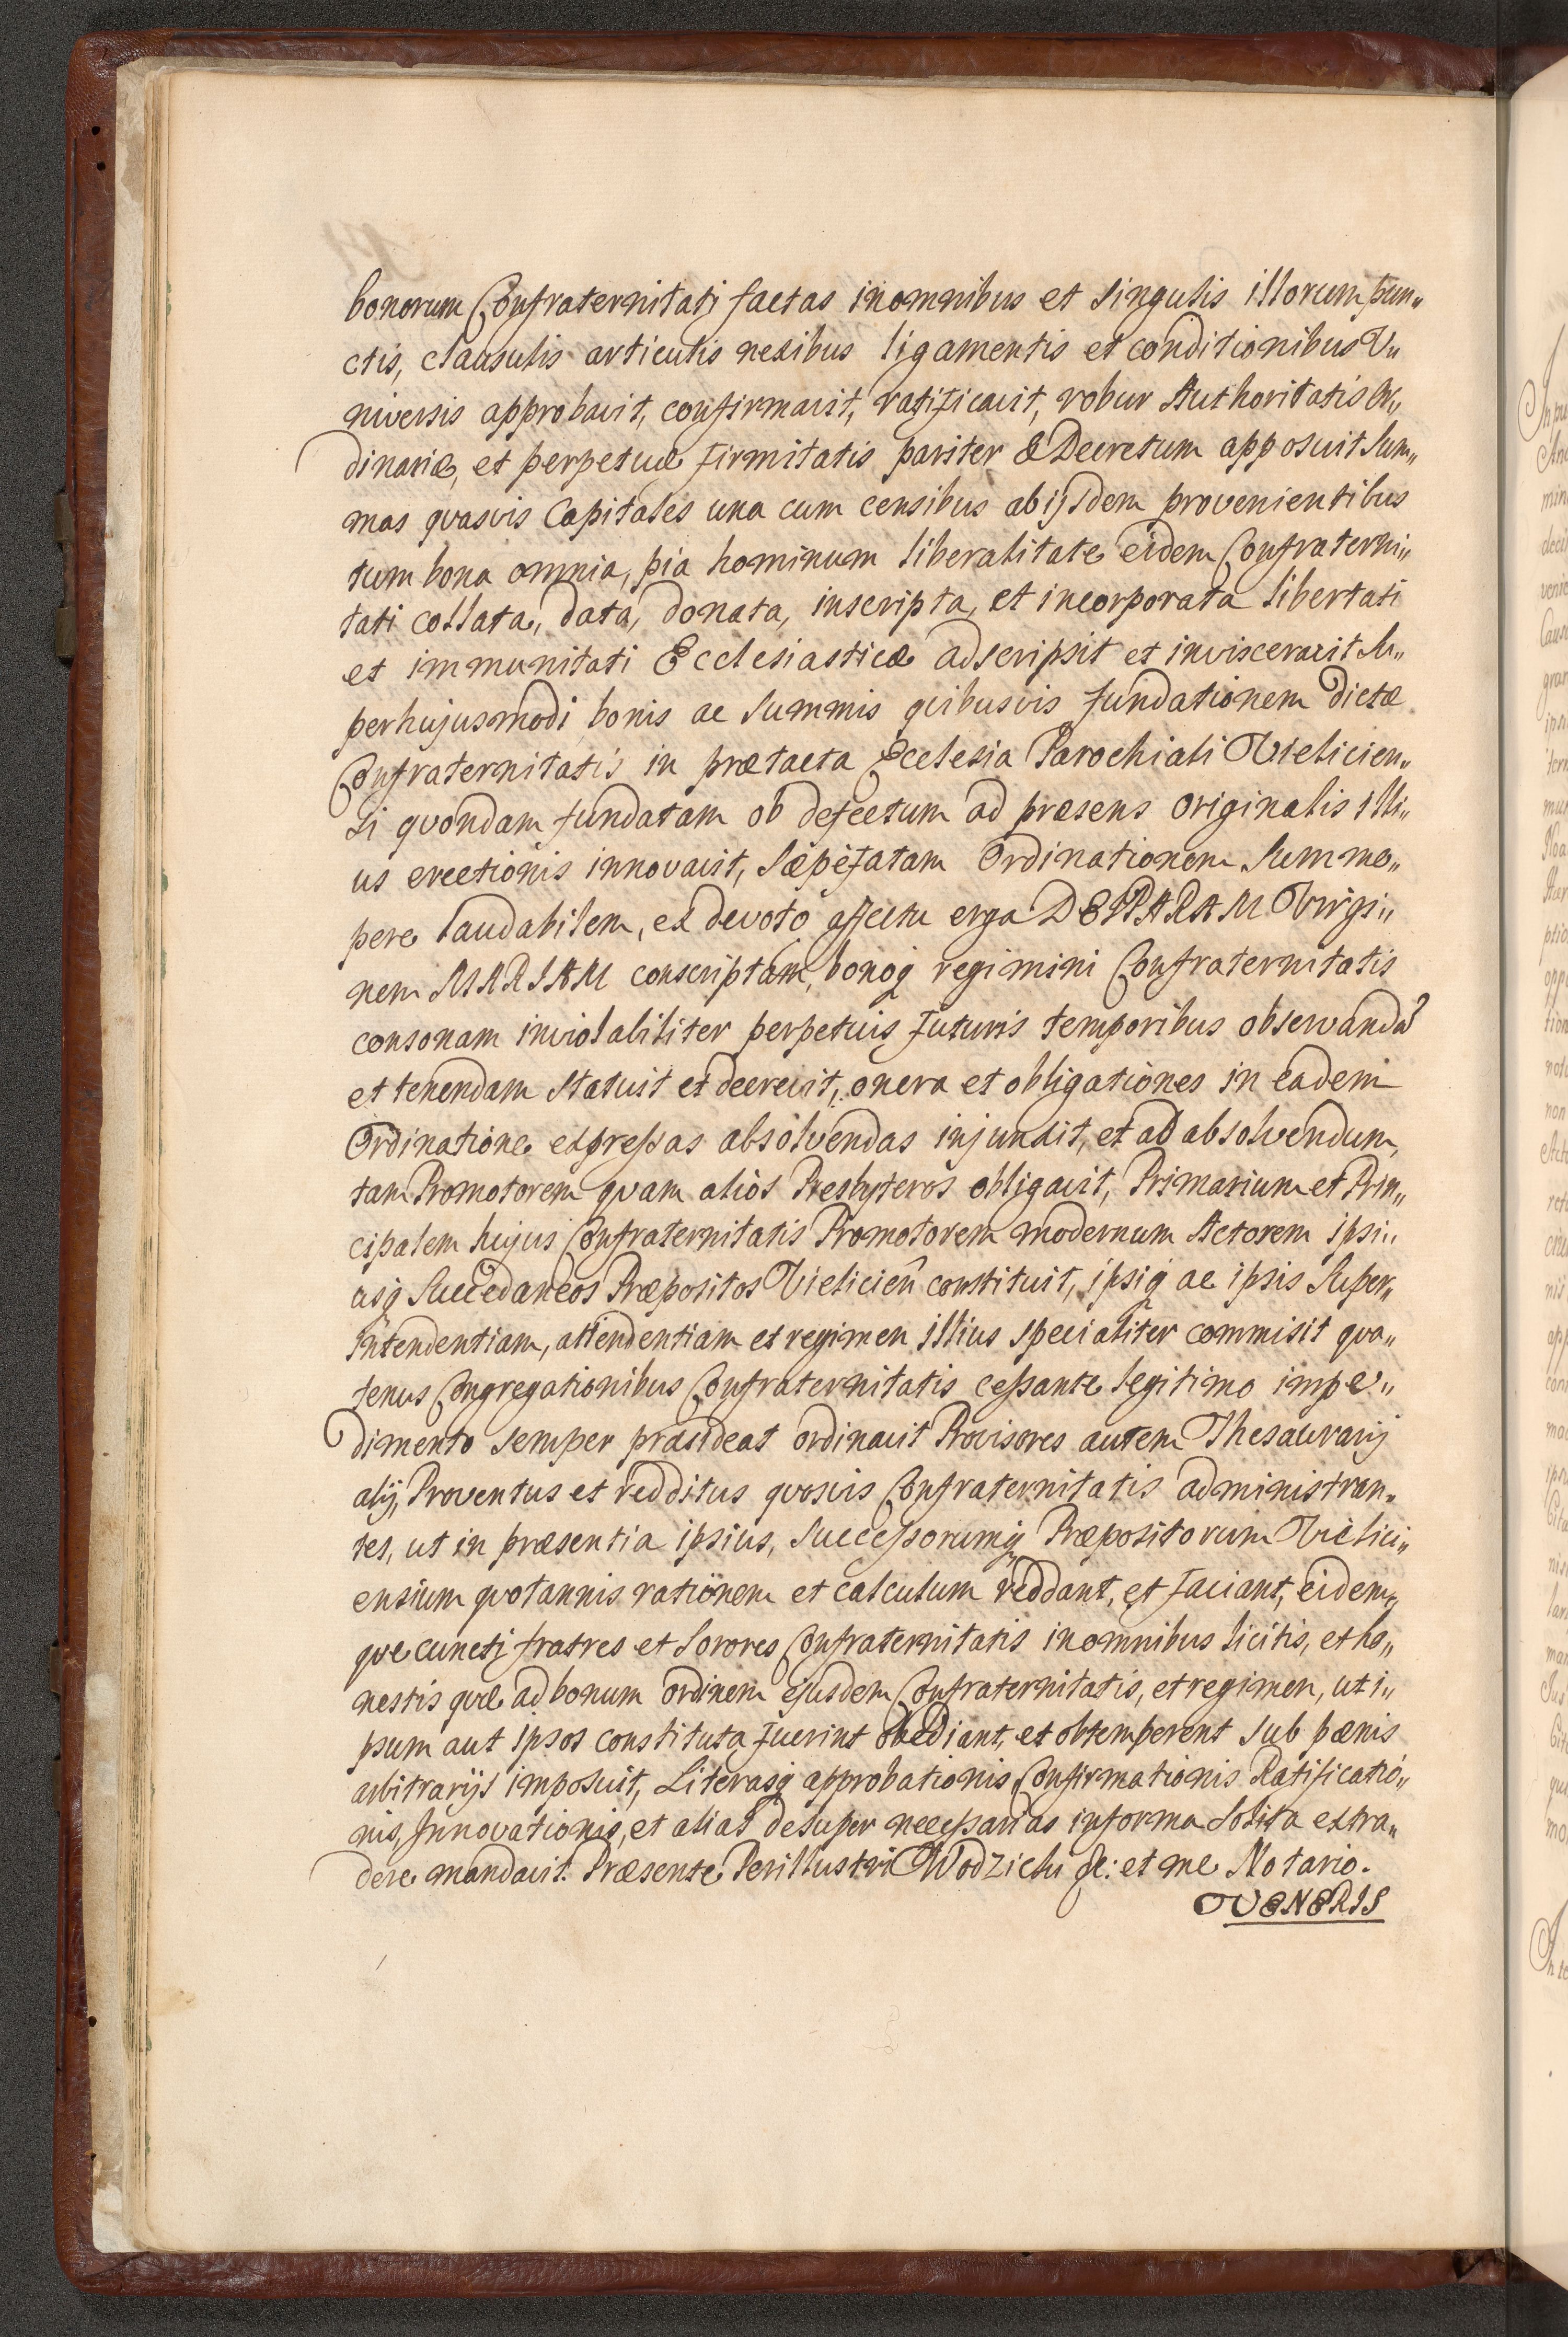 bonorum Confraternitati factas in omnibus et singulis illorum pun„
ctis, clausulis articulis nexibus ligamentis et conditionibus V„
niversis approbavit, confirmavit, ratificavit, robur Authoritatis Or„
dinariæ, et perpetuæ firmitatis pariter & Decretum apposuit Sum„
mas qvasvis Capitales una cum censibus ab ijsdem provenientibus
tum bona omnia, pia hominum liberalitate eidem Confraterni„
tati collata, data, donata, inscripta, et incorporata libertati
et immunitati Ecclesiasticæ adscripsit et invisceravit Su„
per hujusmodi bonis ac Summis qvibusvis fundationem dictæ
Confraternitatis in prætacta Ecclesia Parochiali Vielicien„
si qvondam fundatam ob defectum ad præsens originalis illi„
us erectionis innovavit, Sæpefatam Ordinationem Summo„
pere laudabilem, ex devoto affectu erga DEIPARAM Virgi„
nem MARIAM conscriptam, bonoq regimini Confraternitatis
consonam inviolabiliter perpetuis futuris temporibus observandā
et tenendam statuit et decrevit, onera et obligationes in eadem
Ordinatione expressas absolvendas injunxit, et ad absolvendum,
tam Promotorem qvam alios Presbyteros obligavit, Primarium et Prin„
cipalem hujus Confraternitatis Promotorem modernum Actorem ipsi„
usq Succedaneos Præpositos Vielicień constituit, ipsiq ac ipsis Super„
intendentiam, attendentiam et regimen illius specialiter commisit qva„
tenus Congregationibus Confraternitatis cessante legitimo impe„
dimento semper præsideat ordinavit Provisores autem Thesaurarij
alij, Proventus et redditus qvosvis Confraternitatis administran„
tes, ut in præsentia ipsius, Successorumq Præpositorum Vielici„
ensium qvotannis rationem et calculum reddant, et faciant, eidem„
qve cuncti fratres et Sorores Confraternitatis in omnibus licitis, et ho„
nestis qvæ ad bonum ordinem ejusdem Confraternitatis, et regimen, ut i„
psum aut ipsos constituta fuerint obediant, et obtemperent sub pænis
arbitrarijs imposuit, Literasq approbationis Confirmationis Ratificatio„
nis, Innovationis, et alias desuper necessarias in forma Solita extra„
dere mandavit. Præsente Perillustri Wodzicki &c: et me Notario.
VENERIS